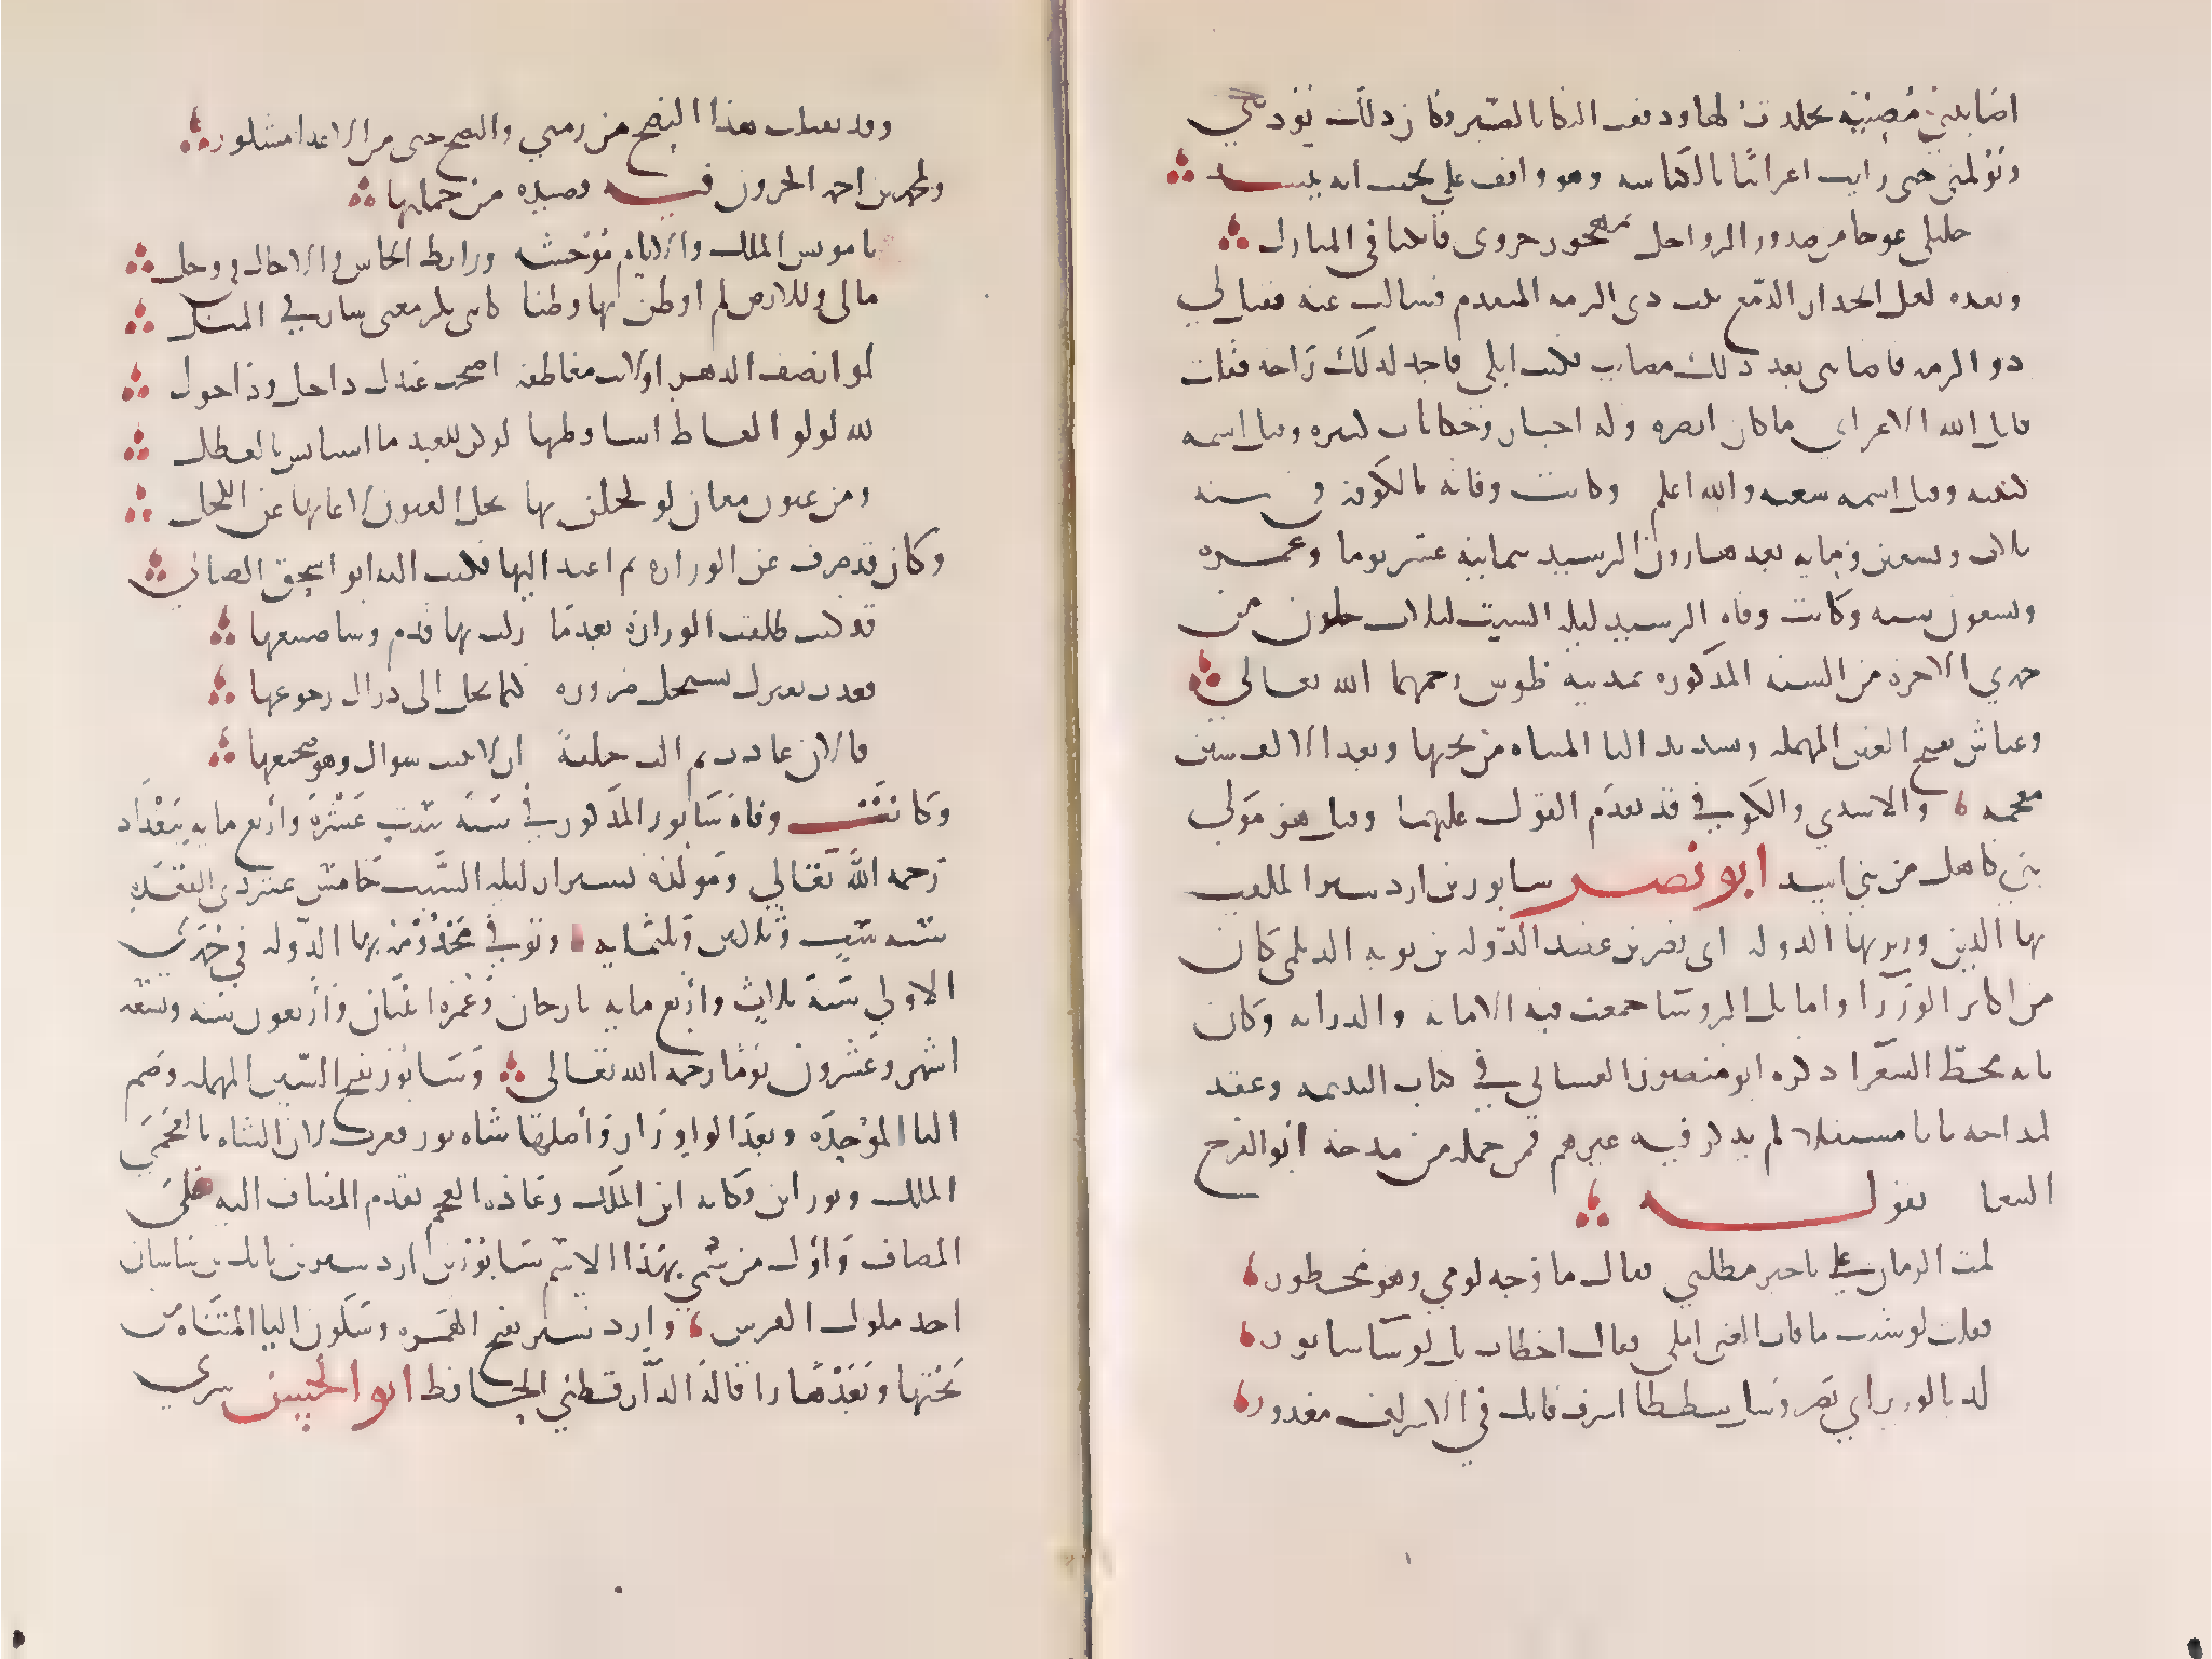 اصابتني مصيبة تجلدت لها ودفعت البكا بالصبر وكان ذلك يوذيني
ويولمني حتى رايت اعرابيا بالكناسه وهو واقف على نجيب له ينشد
خليلي عوجا من صدور الرواحل بمهجور حزوى فابكيا في المنازل
وبعده لعل انحدار الدمع بيت ذي الرمه المتقدم فسالت عنه فقيل لي
ذو الرمه فاصابني بعد ذلك مصايب فكنت ابكي فاجد لذلك راحه فقلت
قاتل الله الاعرابي ما كان ابصره وله اخبار وحكايات كثيره وقيل اسمه
كنيته وقيل اسمه شعبه والله اعلم وكانت وفاته بالكوفه في سنه
ثلاث وتسعين وميايه بعد هارون الرشيد بثمانية عشر يوما وعمره
وتسعون سنه وكانت وفاه الرشيد ليله السبت لثلاث خلون من
جمدي الاخره من السنه المذكوره بمدينه طوس رحمهما الله تعالى
وعياش بفتح العين المهمله وتشديد اليا المثناه من تحتها وبعد الالف شين
معجمه والاسدي والكوفي قد تقدم القول عليهما وقيل هو مولى
بني كاهل من بني اسد ابو نصر سابور بن اردشير الملقب
بها الدين وزير بها الدوله ابي نصر بن عضد الدوله بن بويه الديلمي كان
من اكابر الوزرا واماثل الروسا جمعت فيه الامانه والدرايه وكان
بابه محط الشعرا ذكره ابو منصور الثعالبي في كتاب اليتيمه وعقد
لمداحه بابا مستقلا لم يذكر فيه غيرهم فمن جمله من مدحه ابو الفرج
الببغا بقوله
لمت الزمان على تاخير مطلبي فقال ما وجه لومي وهو محظور
فقلت لو شئت ما فات الغنى املي فقال اخطات بل لو شا سابور
لذ بالوزير ابي نصر وسل شططا اسرف فانك في الاسراف معذور
وقد تقبلت هذا النصح من زمني والنصح حتى من الاعدا مشكور
ولمحمد بن احمد الحرون فيه قصيده من جملتها
يا مونس الملك والايام موحشه ورابط الجاش والاجال في وجل
مالي وللارض لم اوطن بها وطنا كانني بكر معنى سار في المثل
لو انصف الدهر او لانت معاطفه اصبحت عندك ذا خيل وذا خول
لله لولو الفاظ اساقطها لو كن للغيد ما استانس بالعطل
ومن عيون معان لو كحلن بها نجل العيون لاغناها عن الكحل
وكان قد صرف عن الوزاره ثم اعيد اليها فكتب اليه ابو اسحق الصابي
قد كنت طلقت الوزاره بعدما زلت بها قدم وسا صنيعها
فغدت بغيرك تستحل ضروره كيما يحل الى ذراك رجوعها
فالان عادت ثم الت حلفة ان لا يبيت سواك وهو ضجيعها
وكانت وفاة سابور المذكور في سنة ست عشرة واربع مايه ببغداد
رحمه الله تعالى ومولده بشيراز ليله السبت خامس عشر ذي القعده
سنه ست وثلاثين وثلثمايه وتوفي مخدومه بها الدوله في جمدى
الاولى سنة ثلاث واربع مايه بارجان وعمره اثنان واربعون سنه وتسعه
اشهر وعشرون يوما رحمه الله تعالى وسابور بفتح السين المهمله وضم
البا الموحده وبعد الواو را واصلها شاه بور فعرب لان الشاه بالعجمي
الملك وبور ابن وكانه ابن الملك وعاده العجم تقدم المضاف اليه على
المضاف واول من سمي بهذا الاسم سابور بن اردشير بن بابك بن ساسان
احد ملوك الفرس واردشير بفتح الهمزه وسكون اليا المثناه من
تحتها وبعدها را قاله الدارقطني الحافظ ابو الحسن سري